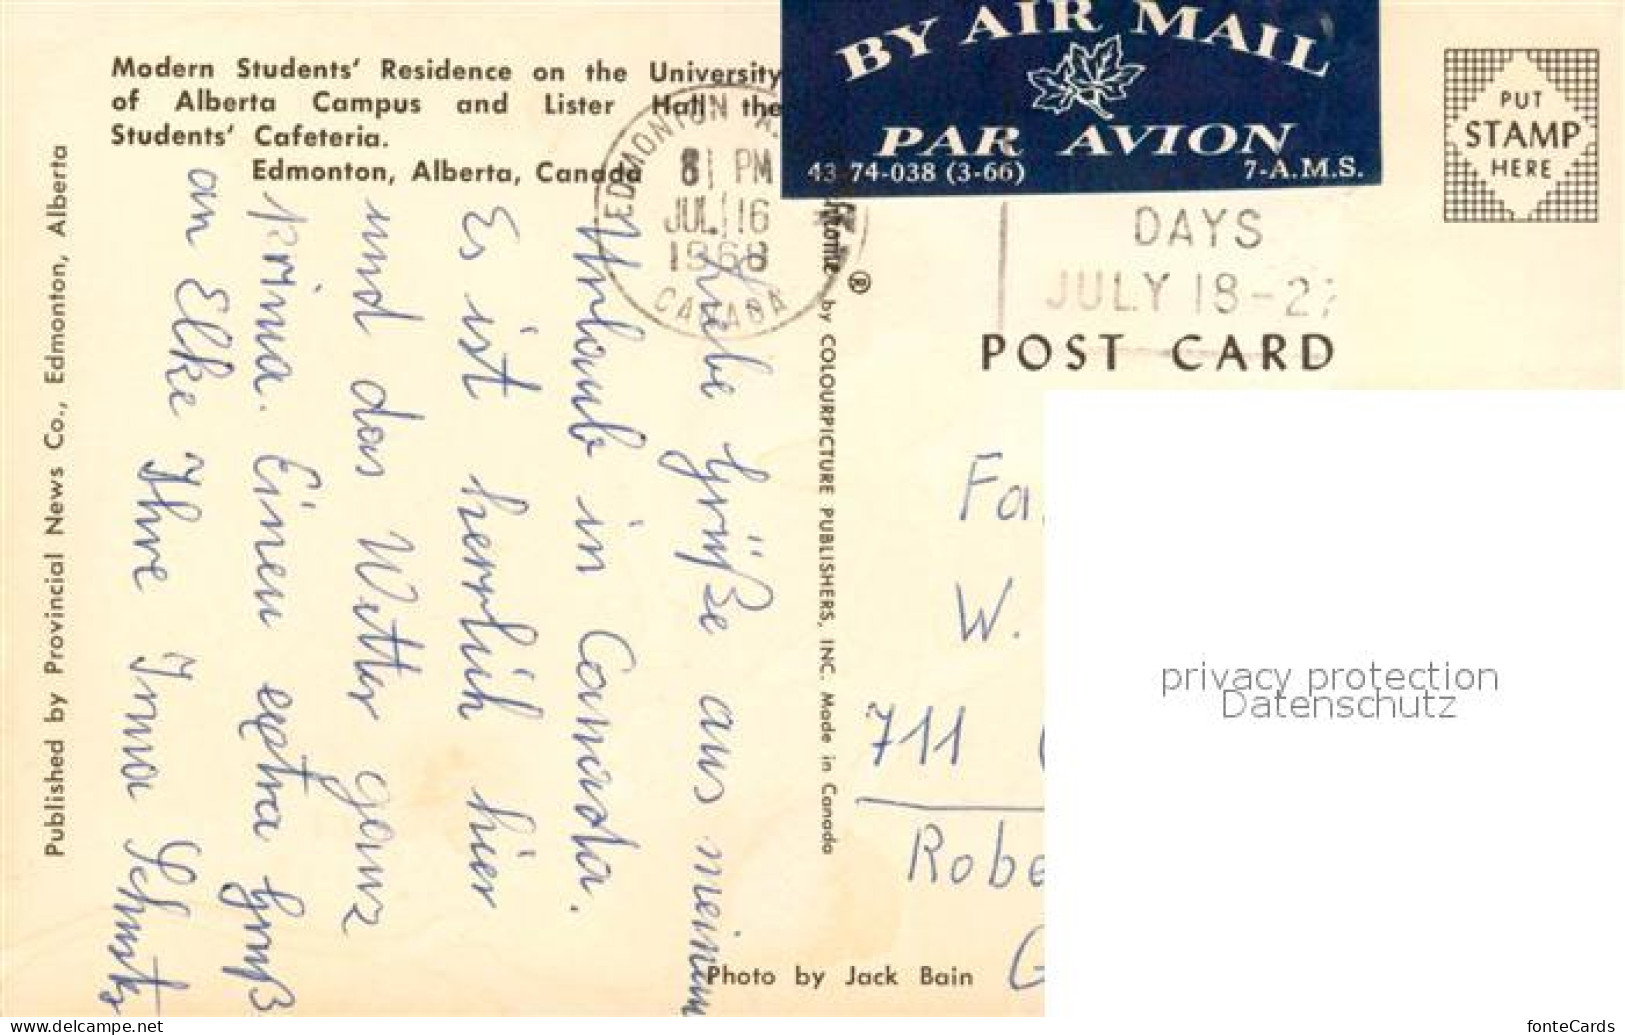 Modern Students' Residence on the University
of Alberta Campus and Lister Hall the
Students' Cafeteria.
Edmonton, Alberta, Canada
EDMONTON A.
8 PM
JUL 16
1968
CANADA
BY AIR MAIL
PAR AVION
43-74-038 (3-66) 7-A.M.S.
PUT
STAMP
HERE
DAYS
JULY 18-27
POST CARD
Liebe Grüße aus meinem
Urlaub in Canada.
Es ist herrlich hier
und das Wetter ganz
prima. Einen extra Gruß
an Elke Ihre Irma
Published by Provincial News Co., Edmonton, Alberta
by COLOURPICTURE PUBLISHERS, INC. Made in Canada
®
Photo by Jack Bain
Fa
W.
711
Robe
G
privacy protection
Datenschutz
www.delcampe.net
fonteCards